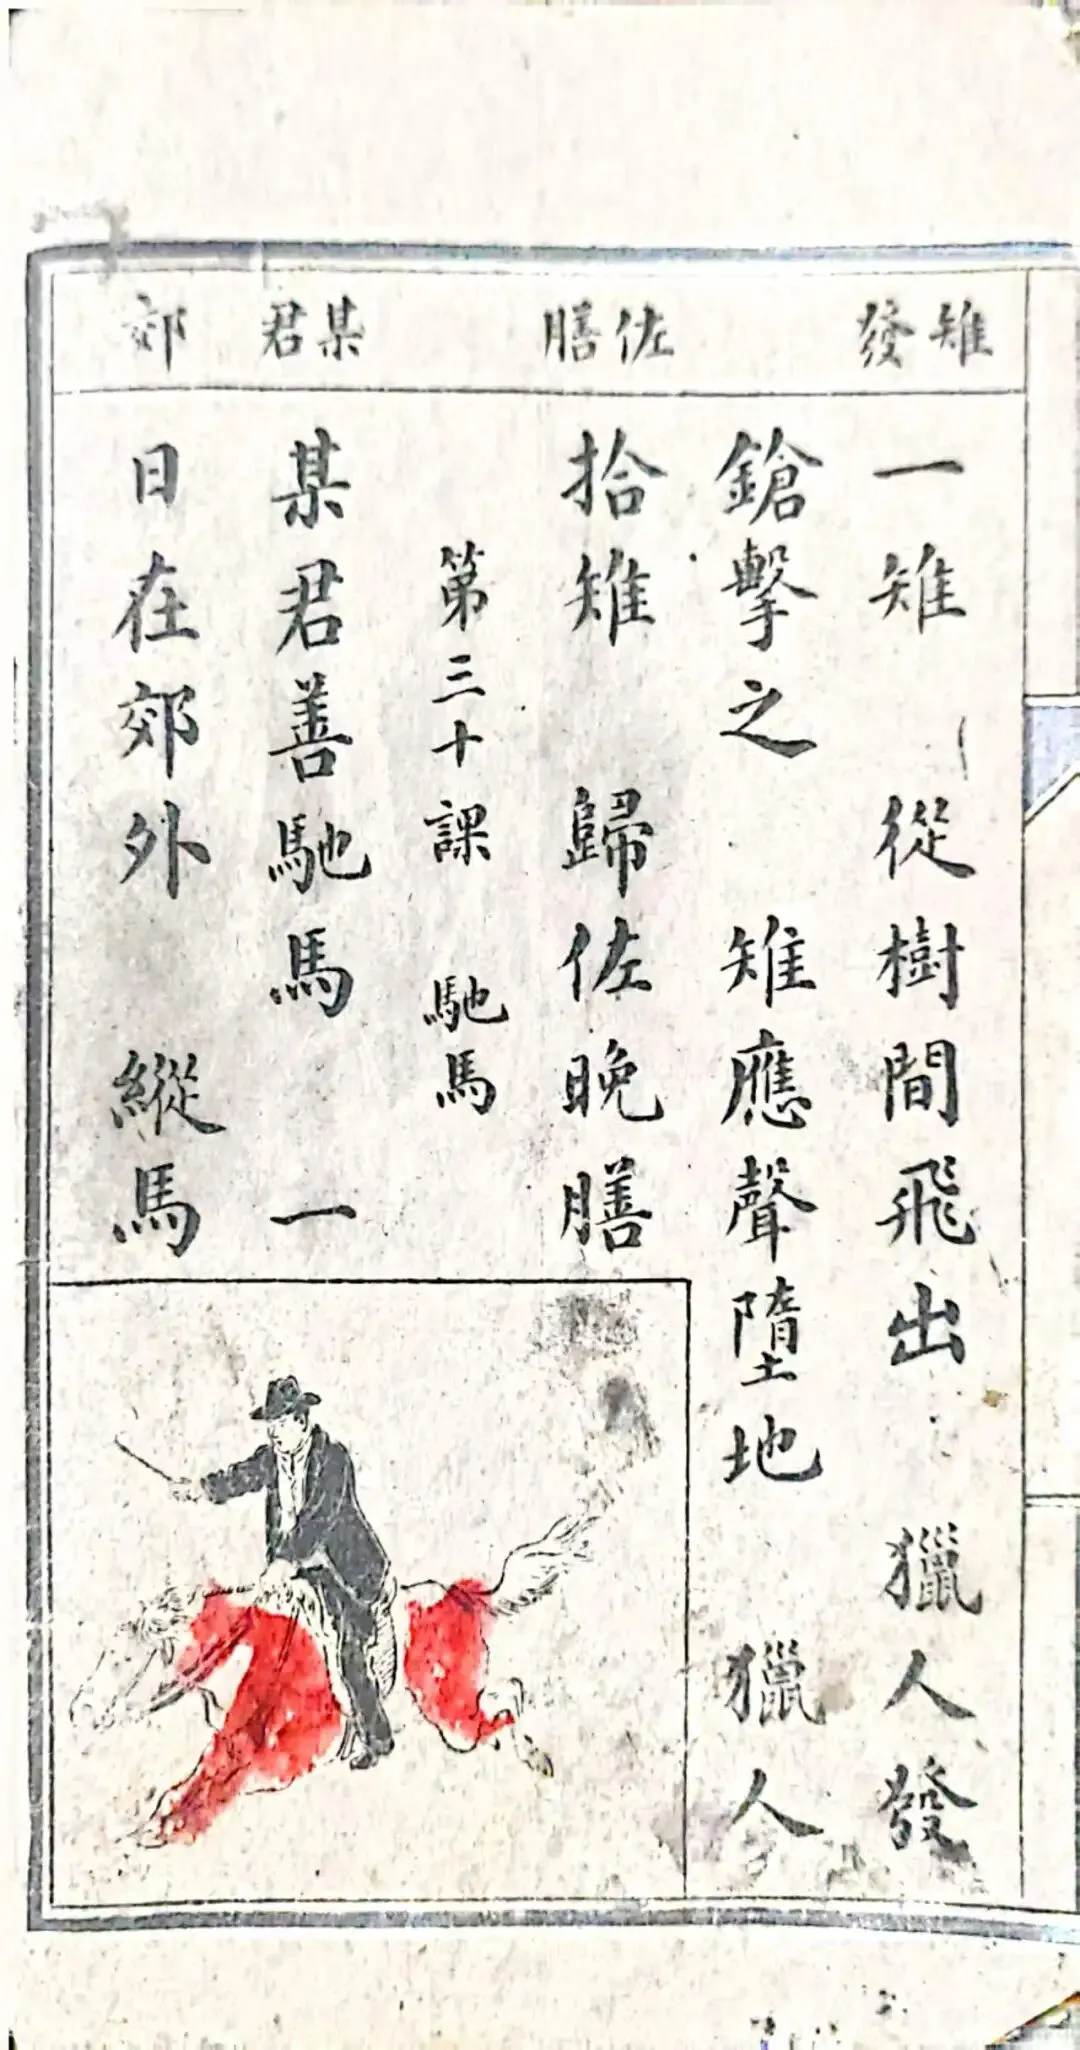 雉 發
佐膳
某君
郊
一雉 從樹間飛出 獵人發
鎗擊之 雉應聲墮地 獵人
拾雉 歸佐晚膳
第三十課 馳馬
某君善馳馬 一
日在郊外 縱馬